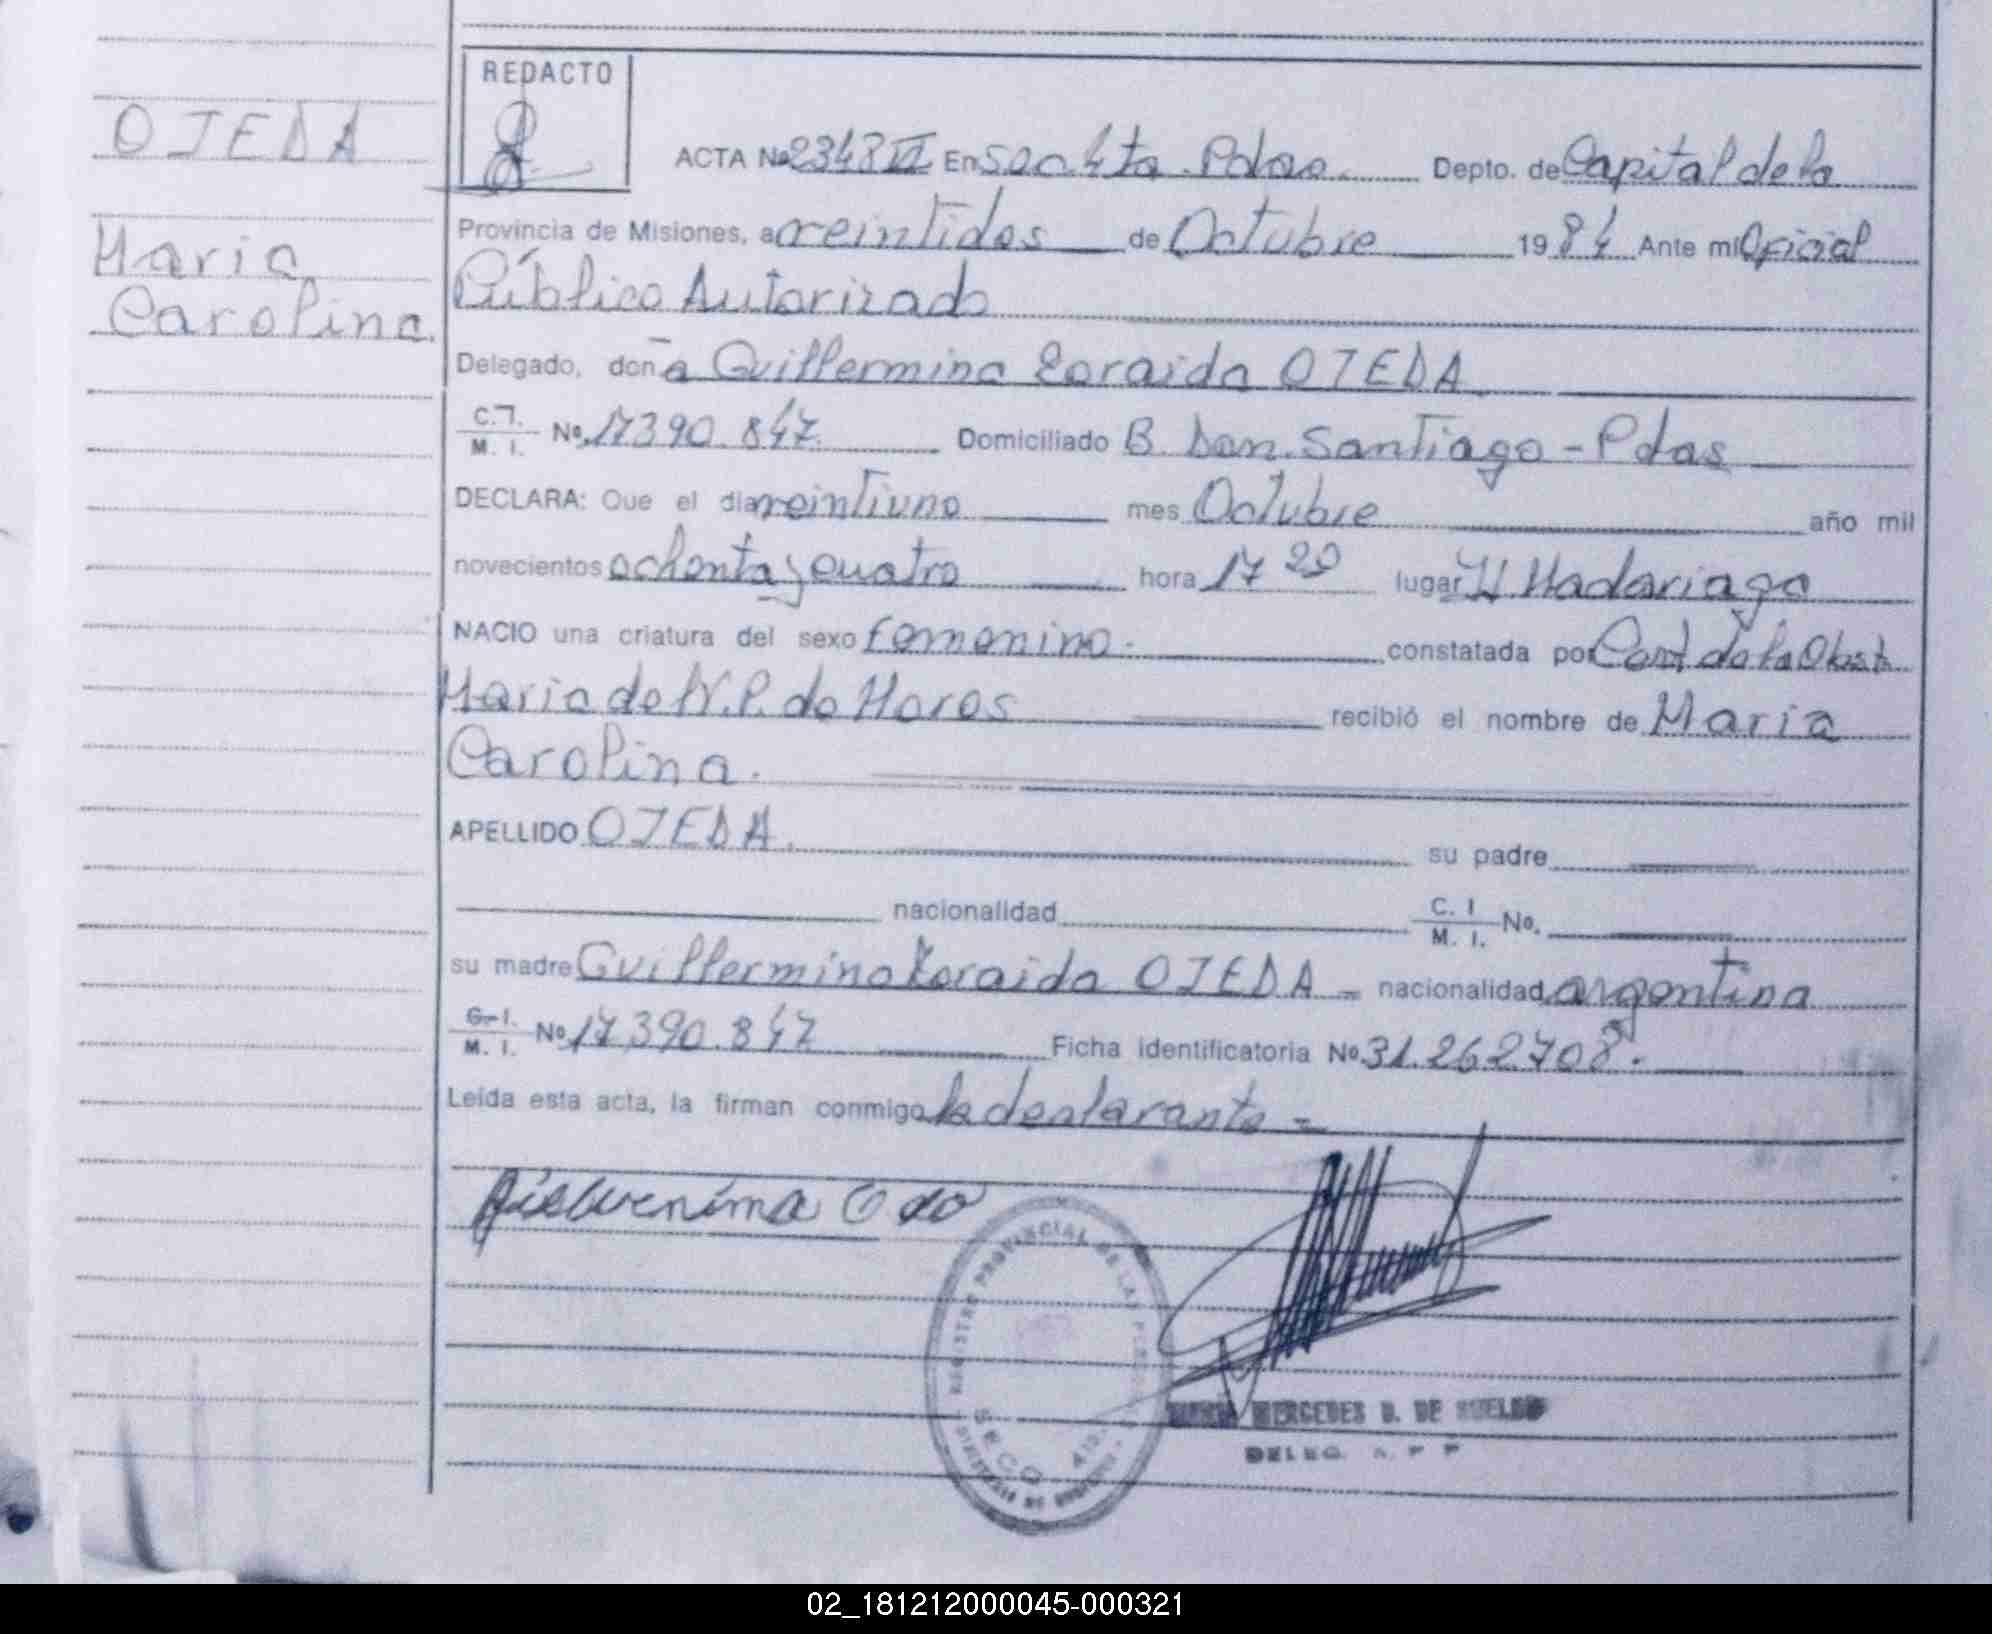 REDACTO
OJEDA
ACTA No 2348 VI En Secc 4ta. Pdas. Depto. de Capital de la
Maria
Carolina.
Provincia de Misiones, a veintidos de Octubre 1984 Ante mi Oficial
Público Autorizado
Delegado, don a Guillermina Zoraida OJEDA
C.I. M. I. No. 17390.847. Domiciliado B. Don. Santiago - Pdas
DECLARA: Que el dia veintiuno mes Octubre año mil
novecientos ochenta y cuatro hora 17 20 lugar H. Madariaga
NACIO una criatura del sexo femenino. constatada por Cert de la Obst
Maria de N. P. de Mores recibió el nombre de Maria
Carolina.
APELLIDO OJEDA. su padre
nacionalidad C. I M. I. No.
su madre Guillermina Zoraida OJEDA - nacionalidad argentina
C.I. M. I. No 17,390.847 Ficha identificatoria No 31.262.708.
Leída esta acta, la firman conmigo la declarante -
REGISTRO PROVINCIAL DE LAS PERSONAS
SECC. 4ta.
MERCEDES B. DE
DELEG.
02_181212000045-000321